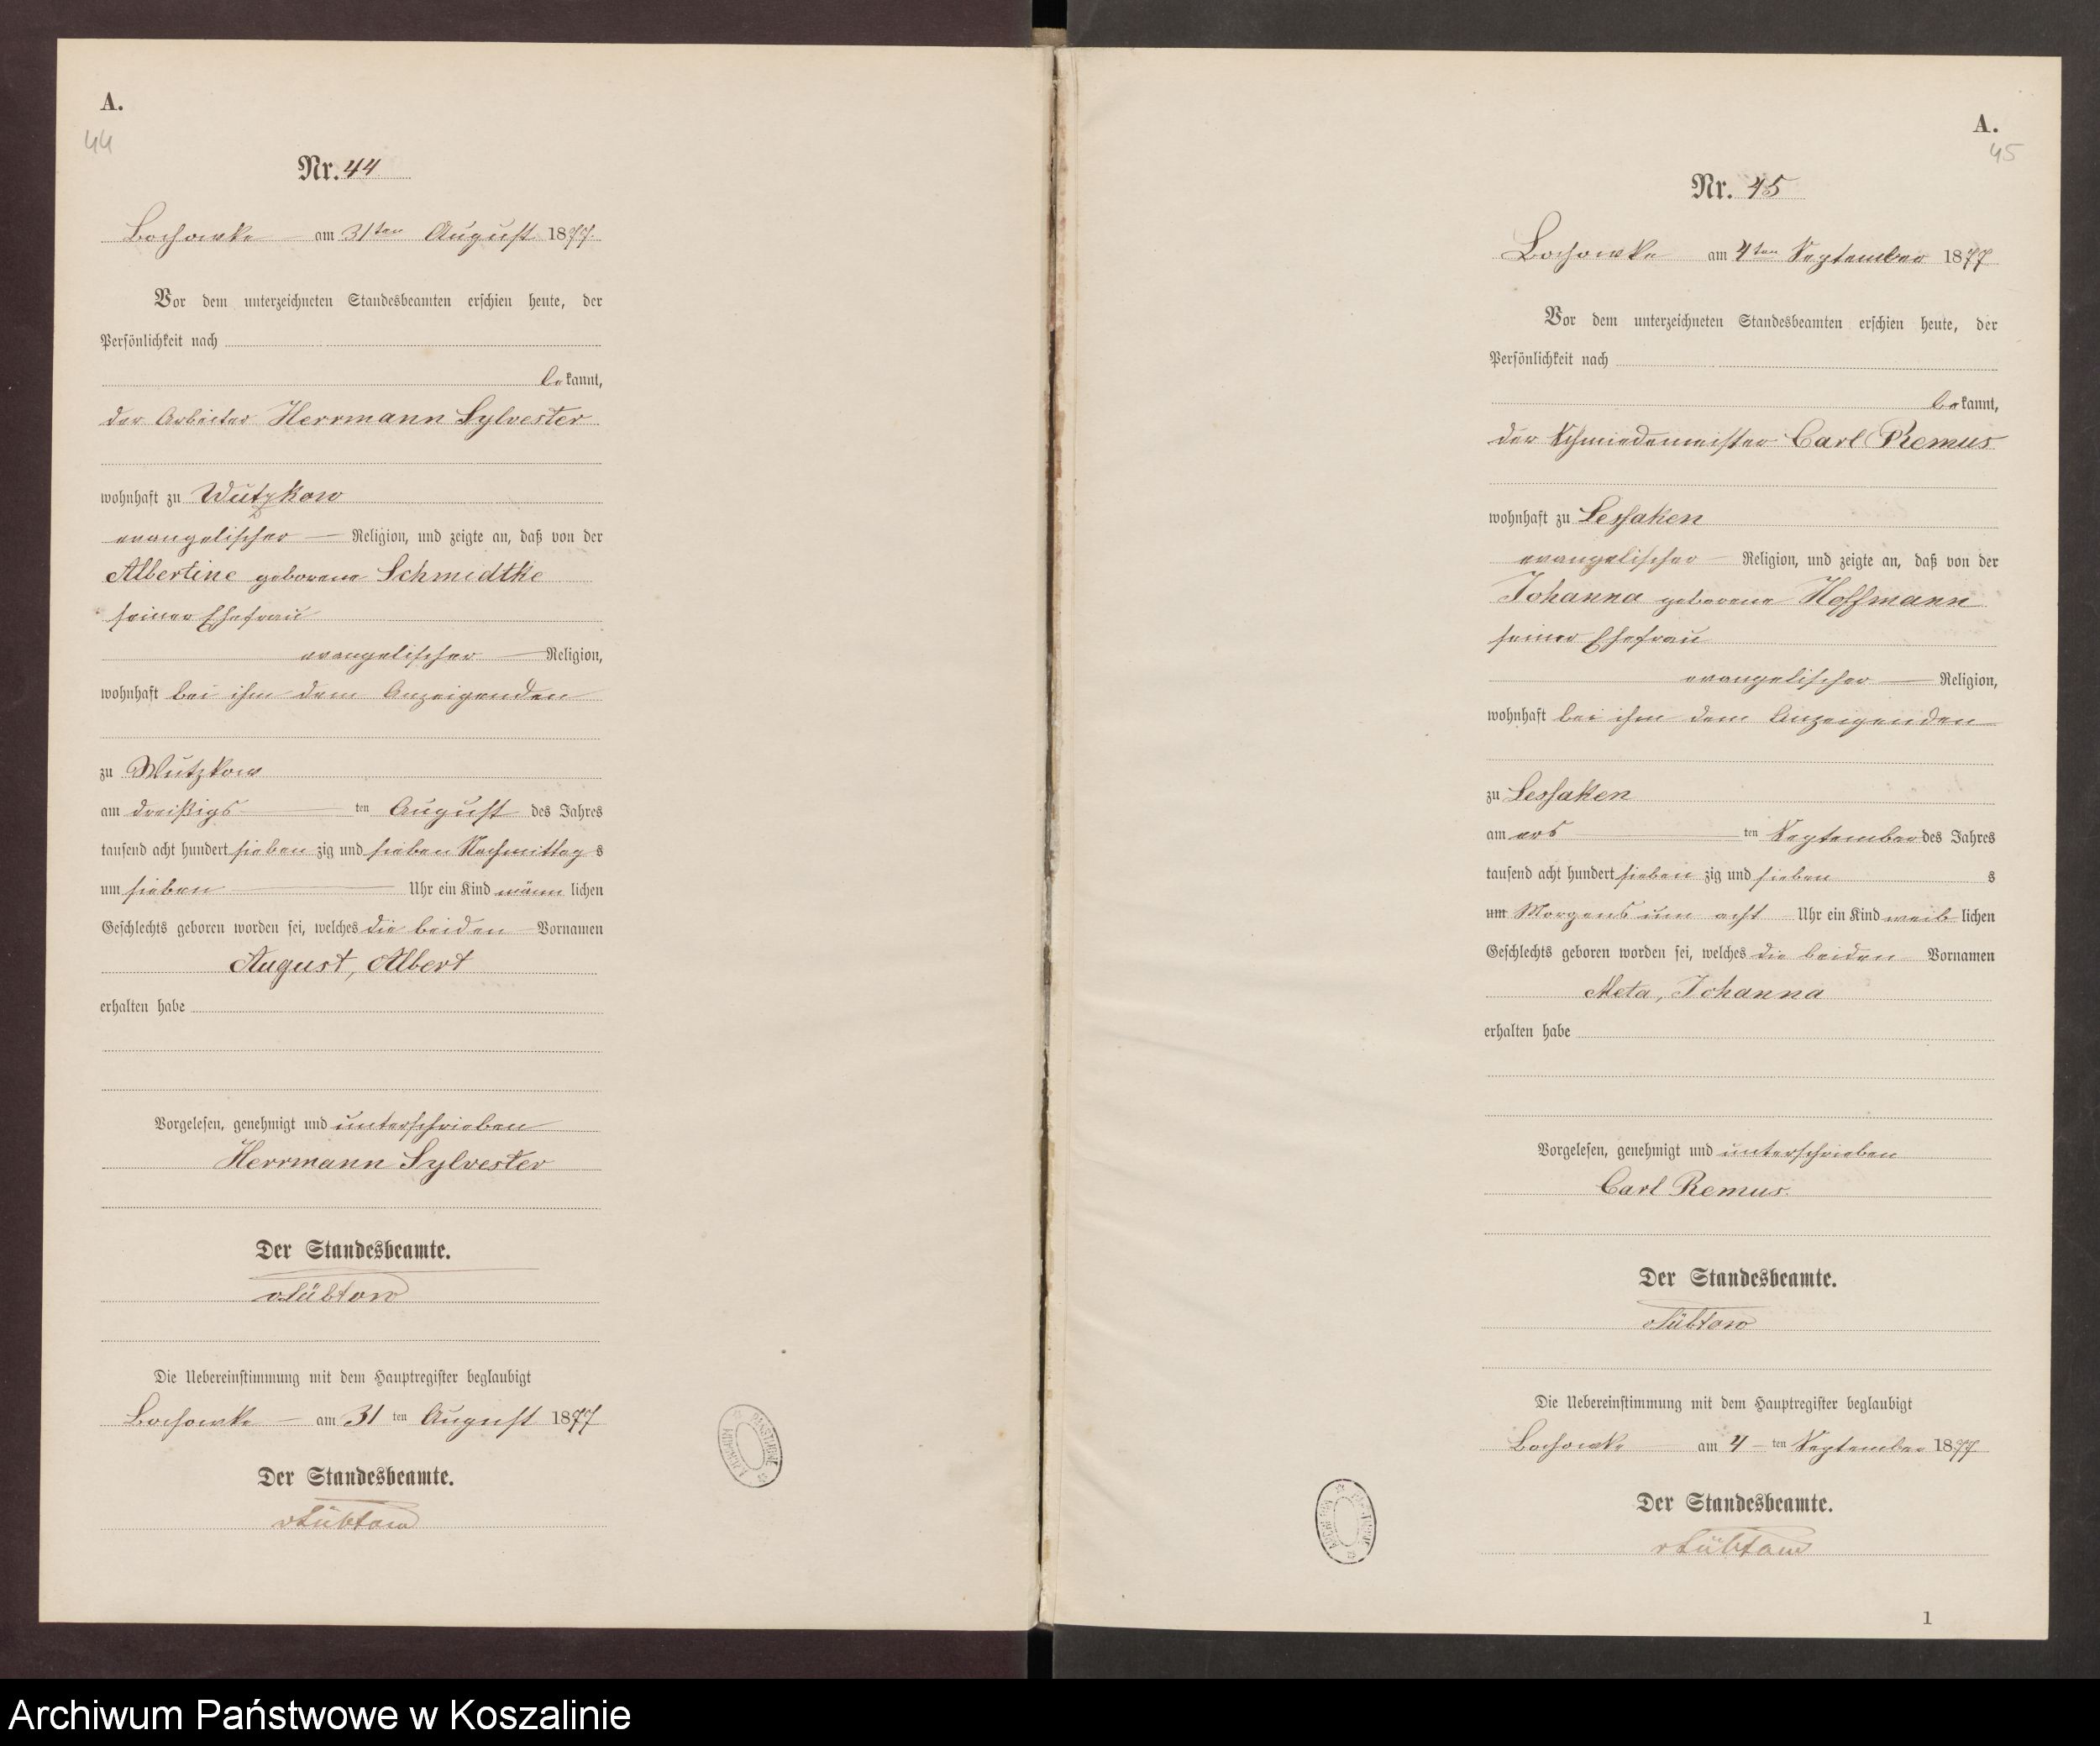 A.
44
Nr. 44
Lochowke am 31ten August 1877.
Vor dem unterzeichneten Standesbeamten erschien heute, der
Persönlichkeit nach
bekannt,
der Arbeiter Herrmann Sylvester
wohnhaft zu Wutzkow
evangelischer Religion, und zeigte an, daß von der
Albertine geborene Schmidtke
seiner Ehefrau
evangelischer Religion,
wohnhaft bei ihm dem Anzeigenden
zu Wutzkow
am dreißigs ten August des Jahres
tausend acht hundert sieben zig und sieben Nachmittag s
um sieben Uhr ein Kind männ lichen
Geschlechts geboren worden sei, welches die beiden Vornamen
August, Albert
erhalten habe
Vorgelesen, genehmigt und unterschrieben
Herrmann Sylvester
Der Standesbeamte.
Die Uebereinstimmung mit dem Hauptregister beglaubigt
Lochowke am 31 ten August 1877
Der Standesbeamte.
A.
45
Nr. 45
Lochowke am 4ten September 1877
Vor dem unterzeichneten Standesbeamten erschien heute, der
Persönlichkeit nach
bekannt,
der Schmiedemeister Carl Remus
wohnhaft zu Lessaken
evangelischer Religion, und zeigte an, daß von der
Johanna geborene Hoffmann
seiner Ehefrau
evangelischer Religion,
wohnhaft bei ihm dem Anzeigenden
zu Lessaken
am ers ten September des Jahres
tausend acht hundert sieben zig und sieben s
um Morgens um acht Uhr ein Kind weib lichen
Geschlechts geboren worden sei, welches die beiden Vornamen
Meta, Johanna
erhalten habe
Vorgelesen, genehmigt und unterschrieben
Carl Remus.
Der Standesbeamte.
Die Uebereinstimmung mit dem Hauptregister beglaubigt
Lochowke am 4 ten September 1877.
Der Standesbeamte.
1
Archiwum Państwowe w Koszalinie